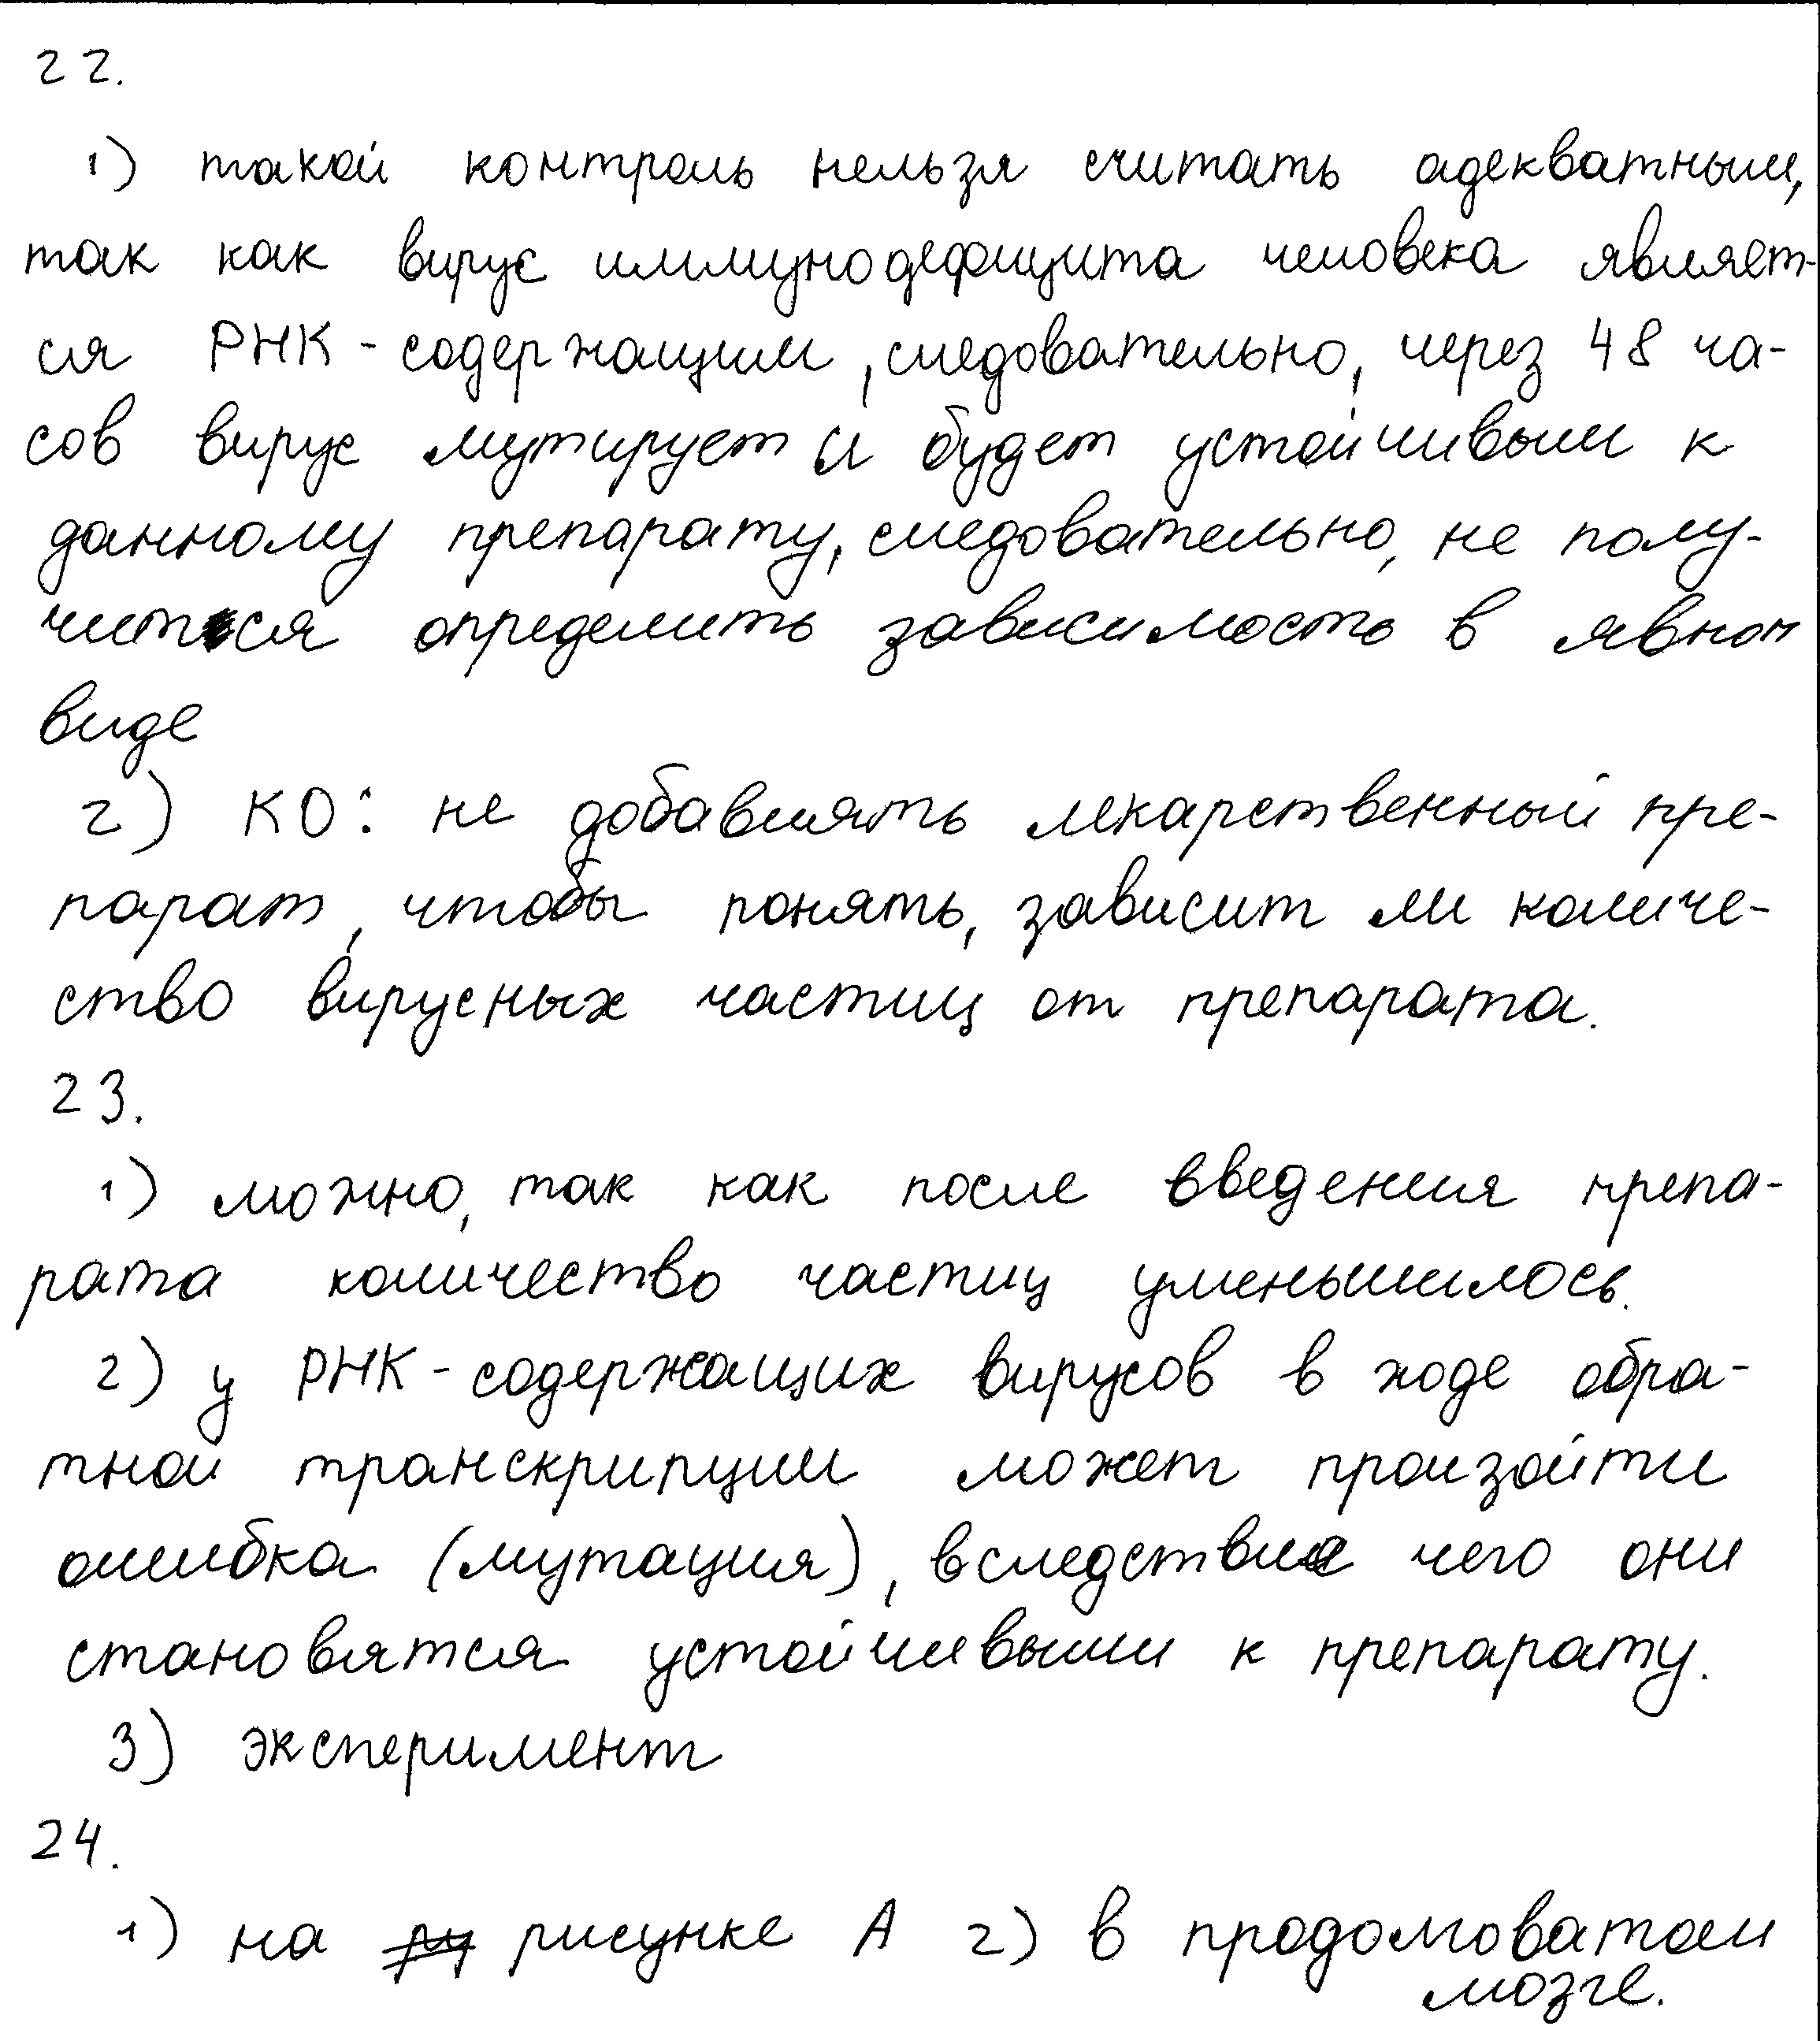 22.
1) такой контроль нельзя считать адекватным,
так как вирус иммунодефицита человека являет-
ся РНК-содержащим, следовательно, через 48 ча-
сов вирус мутирует и будет устойчивым к
данному препарату, следовательно, не полу-
чится определить зависимость в явном
виде
2) КО: не добавлять лекарственный пре-
парат, чтобы понять, зависит ли количе-
ство вирусных частиц от препарата.
23.
1) можно, так как после введения препа-
рата количество частиц уменьшилось.
2) у РНК-содержащих вирусов в ходе обра-
тной транскрипции может произойти
ошибка (мутация), вследствие чего они
становятся устойчивыми к препарату.
3) эксперимент
24.
1) на рисунке А 2) в продолговатом
мозге.